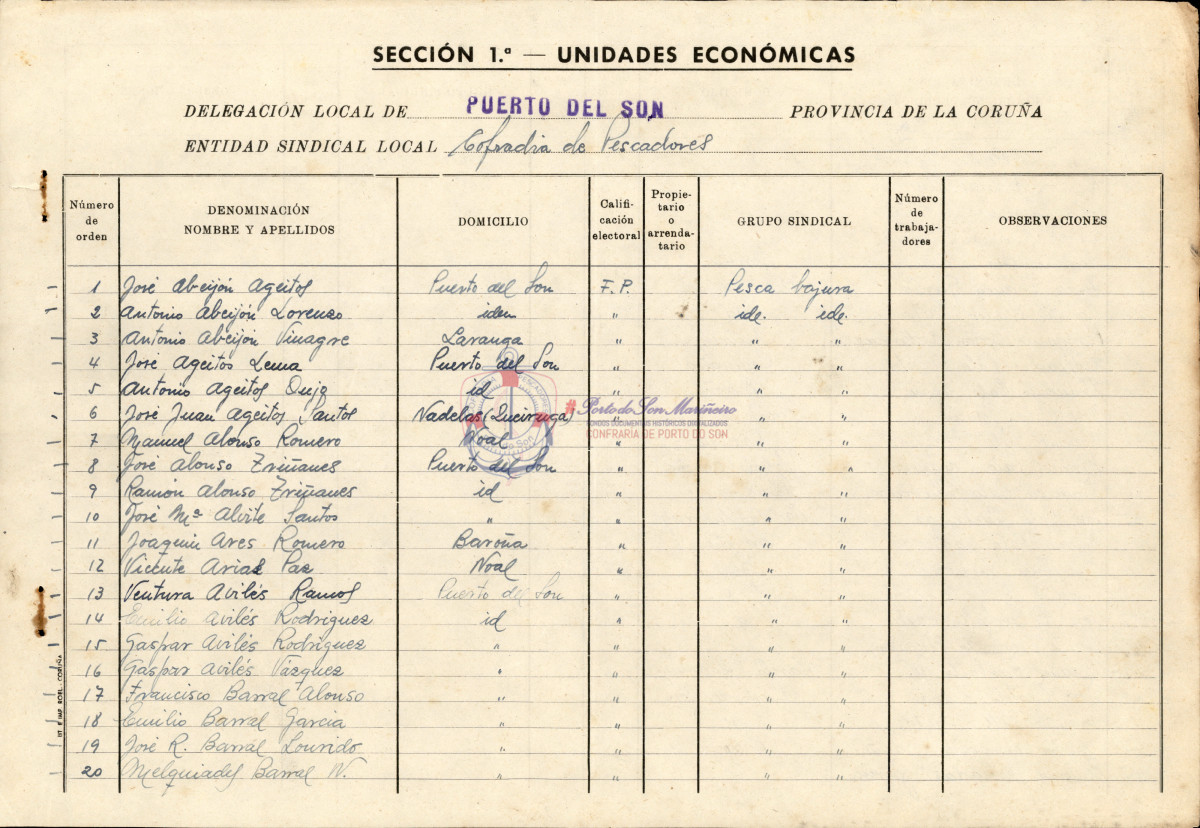 SECCIÓN 1.ª — UNIDADES ECONÓMICAS
DELEGACIÓN LOCAL DE PUERTO DEL SON PROVINCIA DE LA CORUÑA
ENTIDAD SINDICAL LOCAL Cofradia de Pescadores
Número de orden DENOMINACIÓN NOMBRE Y APELLIDOS DOMICILIO Califi-cación electoral Propie-tario o arrenda-tario GRUPO SINDICAL Número de trabaja-dores OBSERVACIONES
1 José Abeijón Ageitos Puerto del Son F.P. Pesca bajura
2 Antonio Abeijón Lorenzo idem " ide. ide.
3 Antonio Abeijón Vinagre Laranga " " "
4 José Ageitos Lema Puerto del Son " " "
5 Antonio Ageitos id " " "
6 José Juan Ageitos Santos Nadelas (Queiruga) " " "
7 Manuel Alonso Romero Noal " " "
8 José Alonso Triñanes Puerto del Son " " "
9 Ramón Alonso Triñanes id " " "
10 José Mª Alvite Santos " " " "
11 Joaquin Ares Romero Baroña " " "
12 Vicente Arias Paz Noal " " "
13 Ventura Avilés Ramos Puerto del Son " " "
14 Emilio Avilés Rodriguez id " " "
15 Gaspar Avilés Rodriguez " " " "
16 Gaspar Avilés Vázquez " " " "
17 Francisco Barral Alonso " " " "
18 Emilio Barral Garcia " " " "
19 José R. Barral Lourido " " " "
20 Melquiades Barral N. " " " "
#PortodoSonMariñeiro
FONDOS DOCUMENTAIS HISTÓRICOS DIXITALIZADOS
CONFRARÍA DE PORTO DO SON